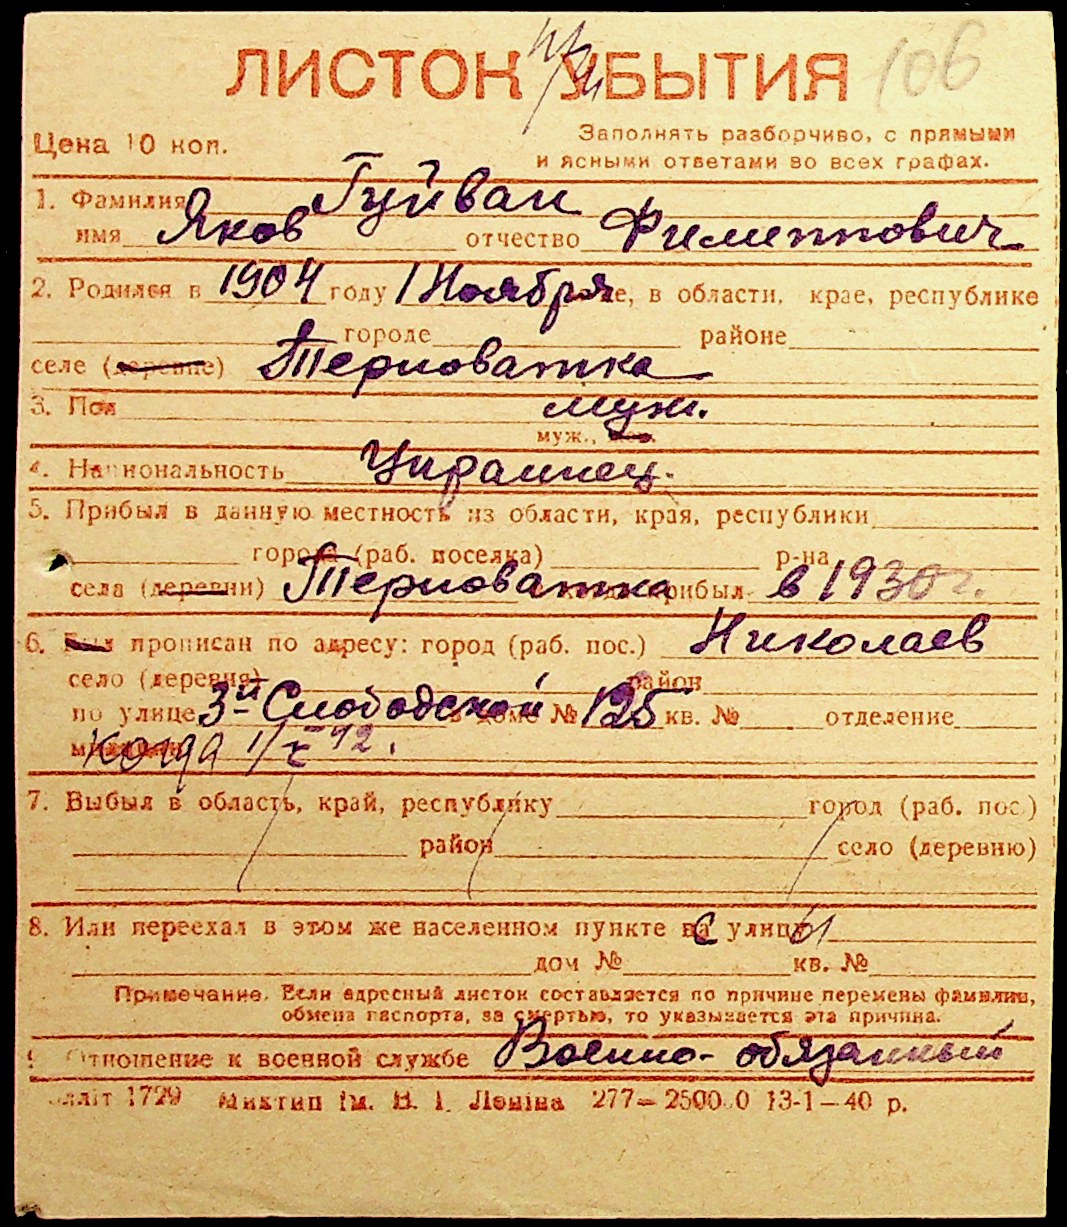 ЛИСТОК УБЫТИЯ 106
Цена 10 коп.
Заполнять разборчиво, с прямыми
и ясными ответами во всех графах.
1. Фамилия Гуйван
имя Яков отчество Филиппович
2. Родился в 1904 году 1 Ноября, в области, крае, республике
городе районе
селе (деревне) Терноватка
3. Пол муж.
муж., жен.
4. Национальность Украинец.
5. Прибыл в данную местность из области, края, республики
города (раб. поселка) р-на
села (деревни) Терноватка прибыл в 1930 г.
6. Был прописан по адресу: город (раб. пос.) Николаев
село (деревня) район
по улице 3й Слободской в доме № 125 кв. № отделение
милиции когда
7. Выбыл в область, край, республику город (раб. пос.)
район село (деревню)
8. Или переехал в этом же населенном пункте с улицы
дом № кв. №
Примечание. Если адресный листок составляется по причине перемены фамилии,
обмена паспорта, за смертью, то указывается эта причина.
9. Отношение к военной службе Военно-обязанный
1729 Миктип ім. В. І. Леніна 277— 13-1—40 р.